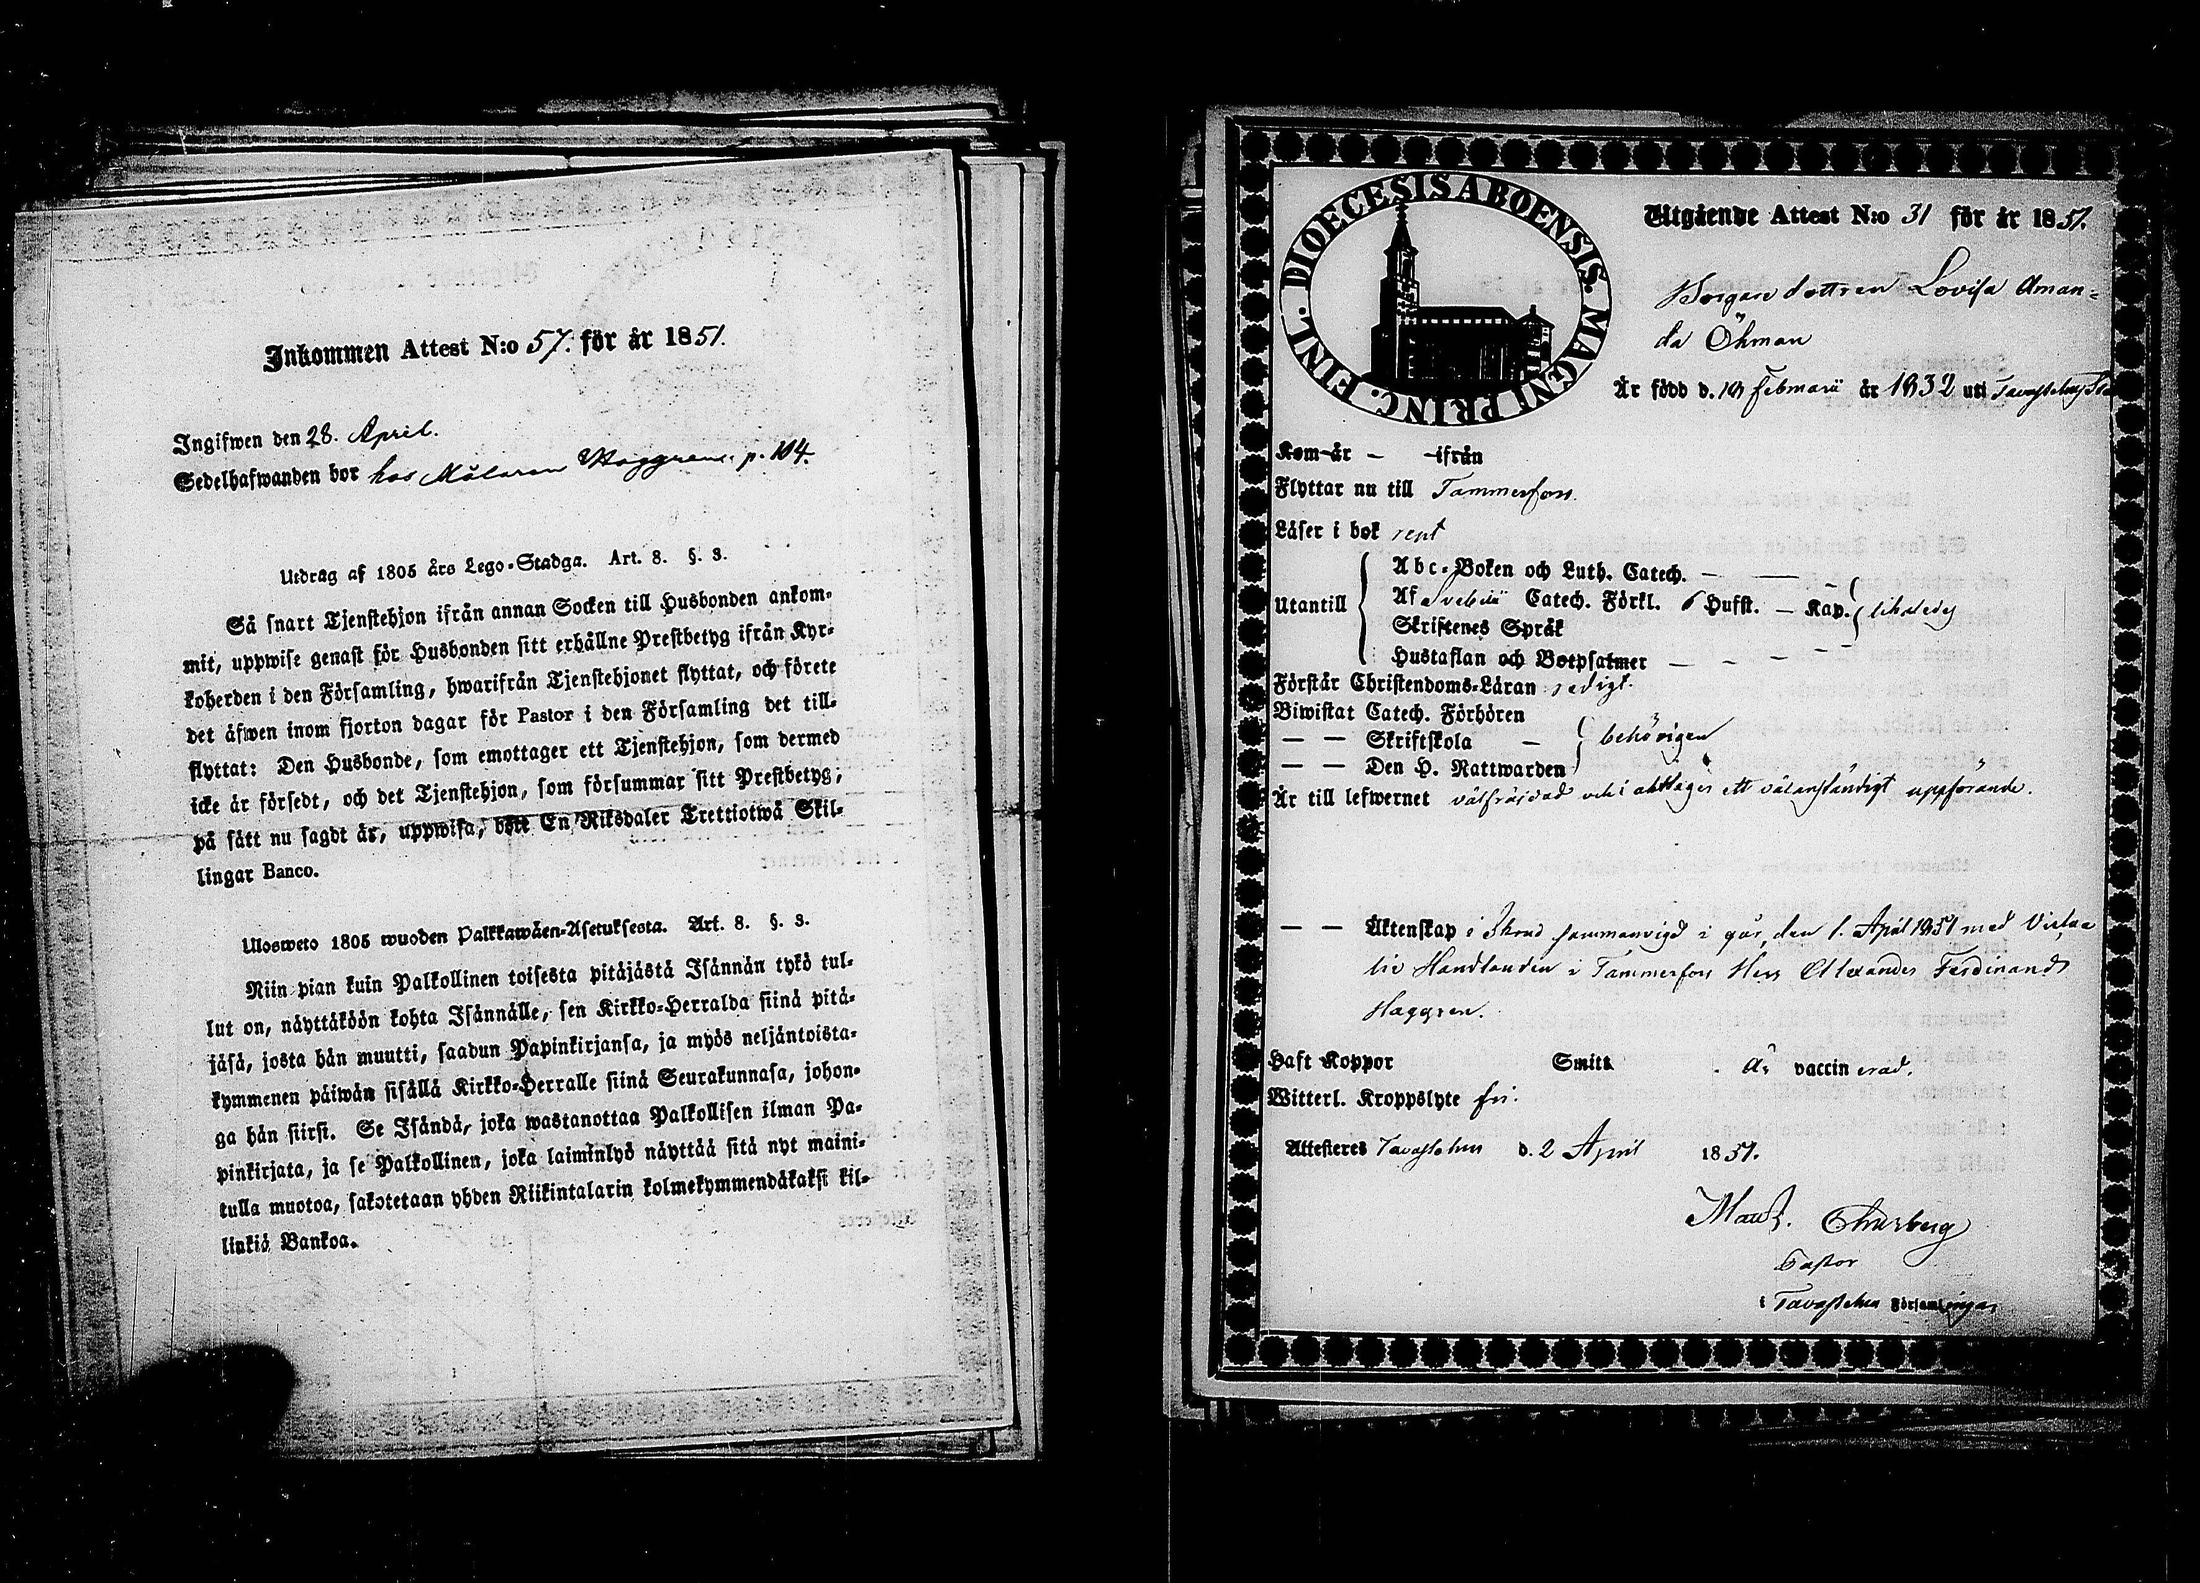 Inkommen Attest N:o 57. för år 1851.
Ingifwen den 28. April.
Sedelhafwanden bor hos Målaren Haggren. p. 104.
Utdrag af 1805 års Lego-Stadga. Art. 8. §. 3.
Så snart Tjenstehjon ifrån annan Socken till Husbonden ankom-
mit, uppwise genast för Husbonden sitt erhållne Prestbetyg ifrån Kyr-
koherden i den Församling, hwarifrån Tjenstehjonet flyttat, och förete
det äfwen inom fjorton dagar för Pastor i den Församling det till-
flyttat: Den Husbonde, som emottager ett Tjenstehjon, som dermed
icke är försedt, och det Tjenstehjon, som försummar sitt Prestbetyg,
på sätt nu sagdt är, uppwisa, böte En Riksdaler Trettiotwå Skil-
lingar Banco.
Ulosweto 1805 wuoden Palkkawäen-Asetuksesta. Art. 8. §. 3.
Niin pian kuin Palkollinen toisesta pitäjästä Isännän tykö tul-
lut on, näyttäköön kohta Isännälle, sen Kirkko-Herralda siinä pitä-
jäsä, josta hän muutti, saadun Papinkirjansa, ja myös neljäntoista-
kymmenen päiwän sisällä Kirkko-Herralle siinä Seurakunnasa, johon-
ga hän siirsi. Se Isändä, joka wastanottaa Palkollisen ilman Pa-
pinkirjata, ja se Palkollinen, joka laiminlyö näyttää sitä nyt maini-
tulla muotoa, sakotetaan yhden Riikintalarin kolmekymmendäkaksi kil-
linkiä Bankoa.
DIOECESIS ABOENSIS. MAGNI PRINC. FINL.
Utgående Attest N:o 31 för år 1851.
Borgare dottren Lovisa Aman-
da Öhman
Är född d. 18 Februarii år 1832 uti Tavastehus Stad
Kom år – ifrån
Flyttar nu till Tammerfors.
Läser i bok rent
Utantill
Abc-Boken och Luth. Catech. – –
Af Svebilii Catech. Förkl. Hufst. – Kap. likaledes
Skriftenes Språk
Hustaflan och Botpsalmer – – – – –
Förstår Christendoms-Läran redigt.
Biwistat Catech. Förhören
— — Skriftskola – behörigen
— — Den H. Nattwarden
Är till lefwernet välfräjdad och i akttager ett välanständigt uppförande.
— — Äktenskap i Stånd sammanvigd i går, den 1. April 1851 med Victua-
lie Handlanden i Tammerfors Herr Alexander Ferdinand
Haggren.
Haft Koppor Smitt . Är vaccinerad.
Witterl. Kroppslyte fri.
Attesteres Tavastehus d. 2 April 1851.
Maur. Churberg
Pastor
i Tavastehus Församlingar